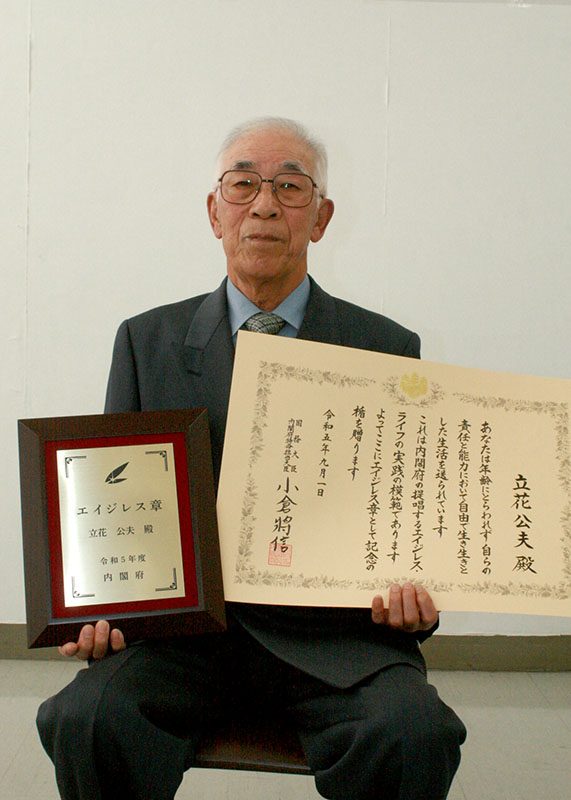 エイジレス章
立花 公夫 殿
令和5年度
内閣府
立花公夫 殿
あなたは年齢にとらわれず 自らの
責任と能力において自由で生き生きと
した生活を送られています
これは内閣府の提唱するエイジレス・
ライフの実践の模範であります
よってここにエイジレス章として記念の
楯を贈ります
令和五年九月一日
国務大臣
内閣府特命担当大臣
小倉將信